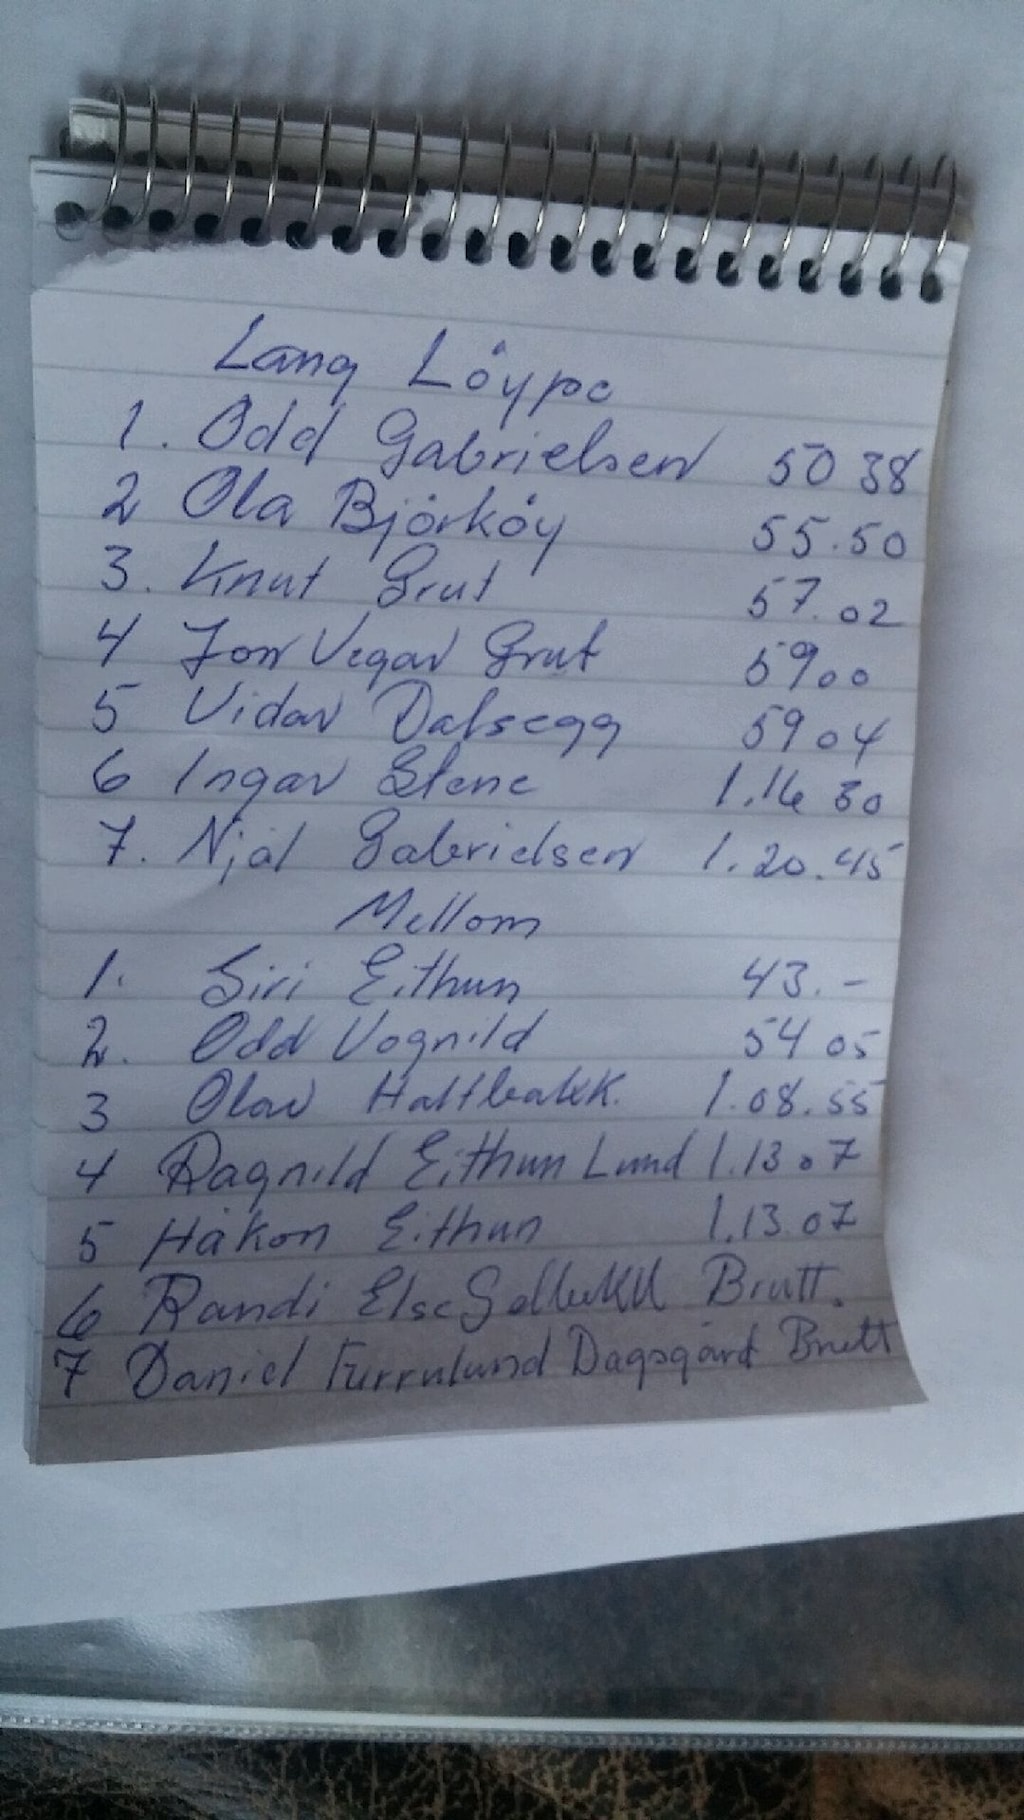 Lang Löype
1. Odd Gabrielsen 50 38
2 Ola Björköy 55.50
3. Knut Grut 57.02
4 Jon Vegar Grut 59 00
5 Vidar Dalsegg 59 04
6 Ingar Stene 1.16 30
7. Njål Gabrielsen 1.20.45
Mellom
1. Siri Eithun 43.-
2. Odd Vognild 54 05
3 Olav Haltbakk. 1.08.55
4 Ragnild Eithun Lund 1.13 07
5 Håkon Eithun 1.13.07
6 Randi Else Brutt.
7 Daniel Furrulund Dagsgård Brutt